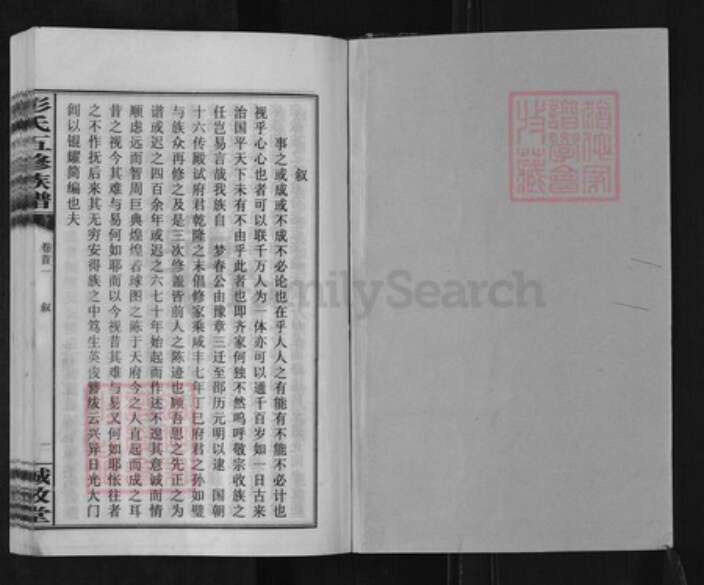 叙
事之或成或不成不必论也在乎人人之有能有不能不必计也
视乎心心也者可以联千万人为一体亦可以通千百岁如一日古来
治国平天下未有不由乎此者也即齐家何独不然呜呼敬宗收族之
任岂易言哉我族自 梦春公由豫章三迁至邵历元明以逮 国朝
十六传殿试府君乾隆之末倡修家乘咸丰七年丁巳府君之孙如璧
与族众再修之及是三次修盖皆前人之陈迹也顾吾思之先正之为
谱或迟之四百余年或迟之六七十年始起而作述不遑其意诚而情
顺虑远而智周巨典煌煌若球图之陈于天府今之人直起而成之耳
昔之视今其难与易何如耶而以今视昔其难与易又何如耶怅往者
之不作抚后来其无穷安得族之中笃生英俊簪绂云兴异日光大门
闾以锟耀简编也夫
彭氏五修族谱
卷首一
叙
一
诚敬堂
FamilySearch